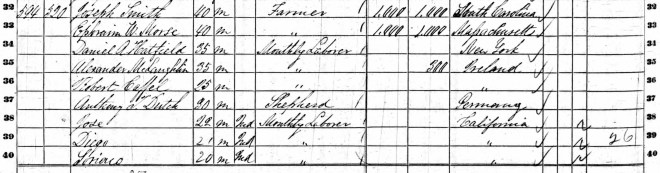 32 594 530 Joseph Smith 40 m Farmer 1,000 1,000 South Carolina 32
33 Ephraim W. Morse 40 m " 1,000 1,000 Massachusetts 33
34 Daniel A Hatfield 35 m Monthly Laborer New York 34
35 Alexander McLaughlin 35 m " 300 Ireland 35
36 Robert 25 m " " 36
37 Anthony Dutch 20 m Shepherd Germany 37
38 Jose 22 m Ind Monthly Laborer California 38
39 Diego 21 m Ind " " 26 39
40 20 m Ind " " 40